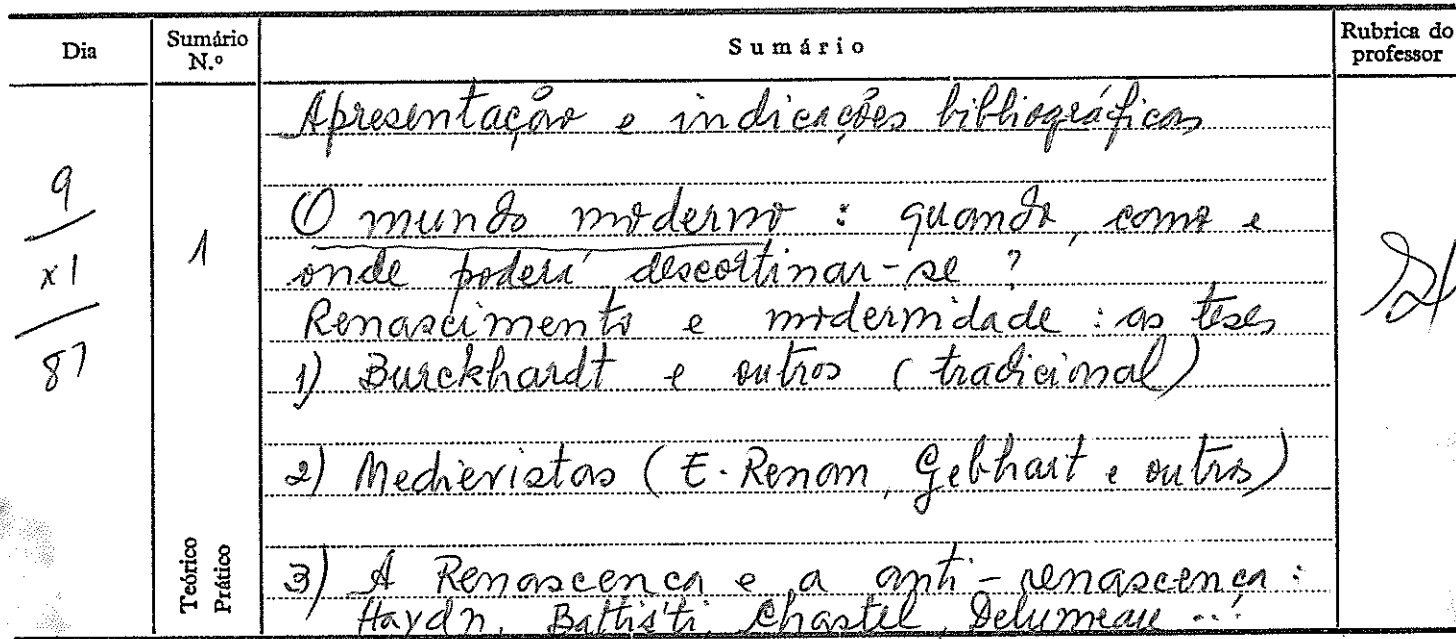 Dia
Sumário N.º
Sumário
Rubrica do professor
9
XI
87
1
Teórico
Prático
Apresentação e indicações bibliográficas
O mundo moderno : quando, como e
onde poderá descortinar-se ?
Renascimento e modernidade : as teses
1) Burckhardt e outros (tradicional)
2) Medievistas (E. Renan, Gebhart e outros)
3) A Renascença e a anti-renascença :
Haydn, Battisti, Chastel, Delumeau ...